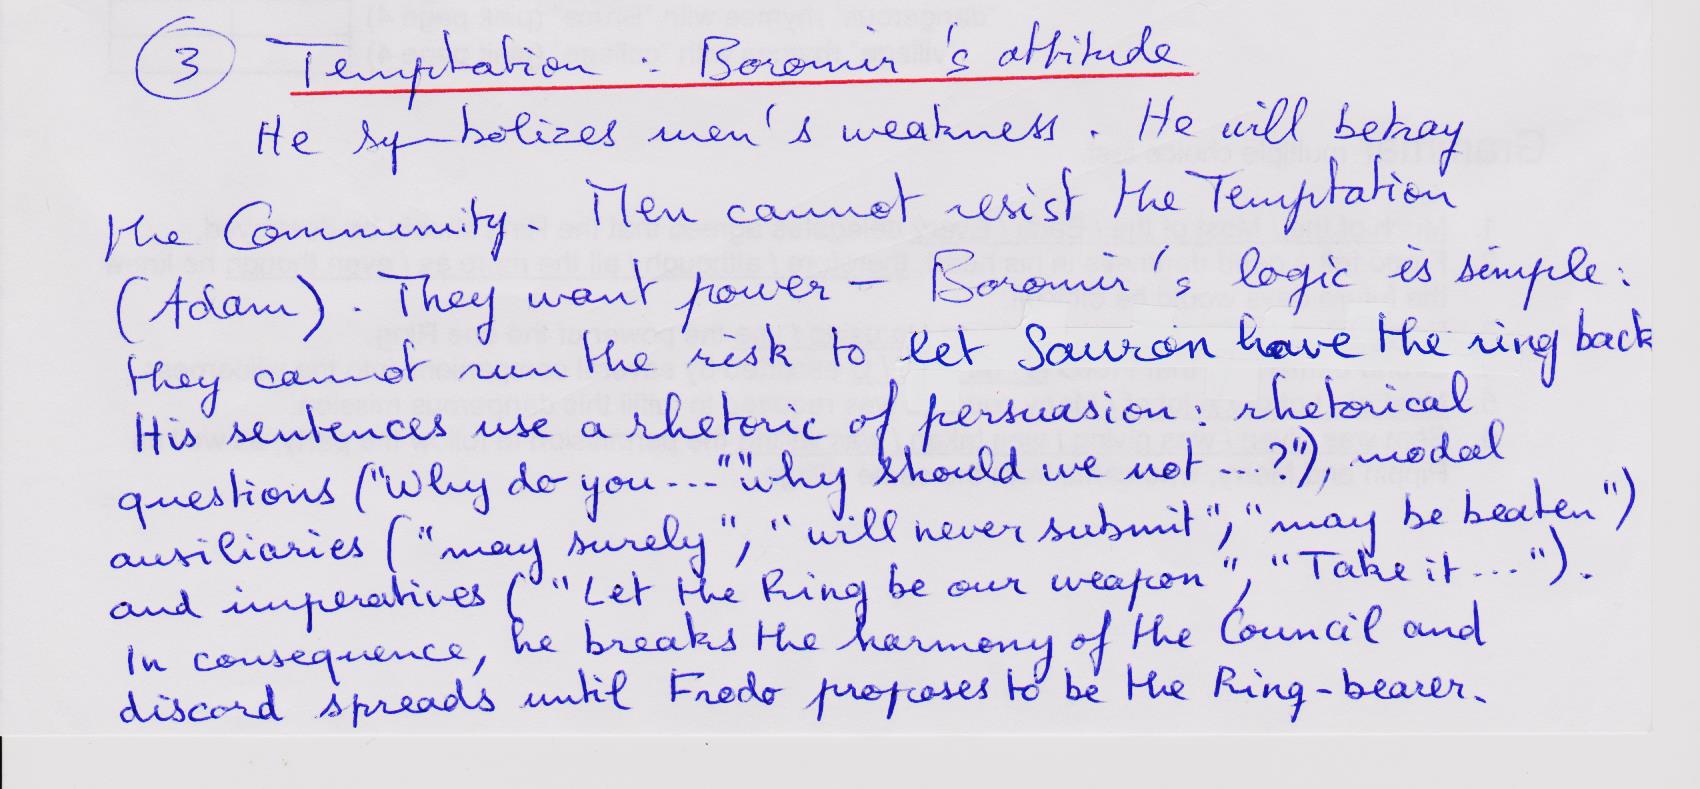 3 Temptation : Boromir's attitude
He symbolizes men's weakness. He will betray
the Community. Men cannot resist the Temptation
(Adam). They want power - Boromir's logic is simple:
they cannot run the risk to let Sauron have the ring back
His sentences use a rhetoric of persuasion: rhetorical
questions ("Why do you..." "why should we not ...?"), modal
auxiliaries ("may surely", "will never submit", "may be beaten")
and imperatives ("Let the Ring be our weapon", "Take it ...").
In consequence, he breaks the harmony of the Council and
discord spreads until Frodo proposes to be the Ring-bearer.